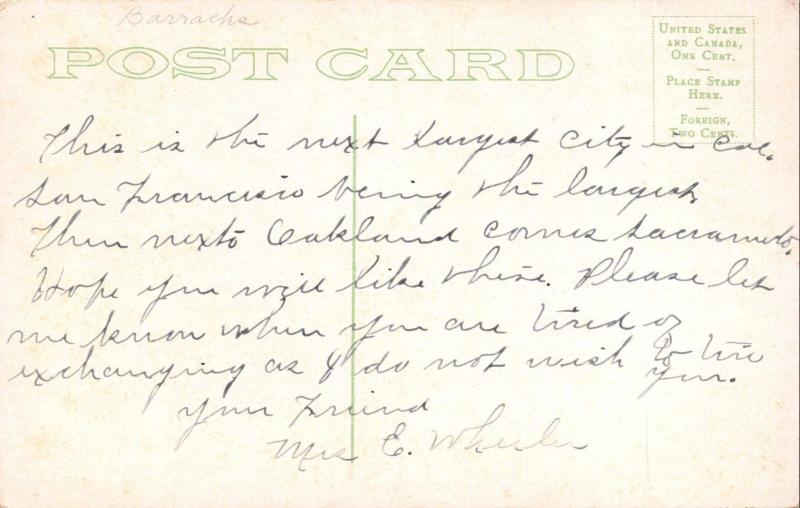 Barracks
POST CARD
UNITED STATES
AND CANADA,
ONE CENT.
—
PLACE STAMP
HERE.
—
FOREIGN,
TWO CENTS.
This is the next largest city in Cal.
San Francisio being the largest,
Then nextō Oakland comes Sacramento.
Hope you will like these. Please let
me know when you are tired of
exchanging as I do not wish to tire
you.
your Friend
Mrs E. Wheeler